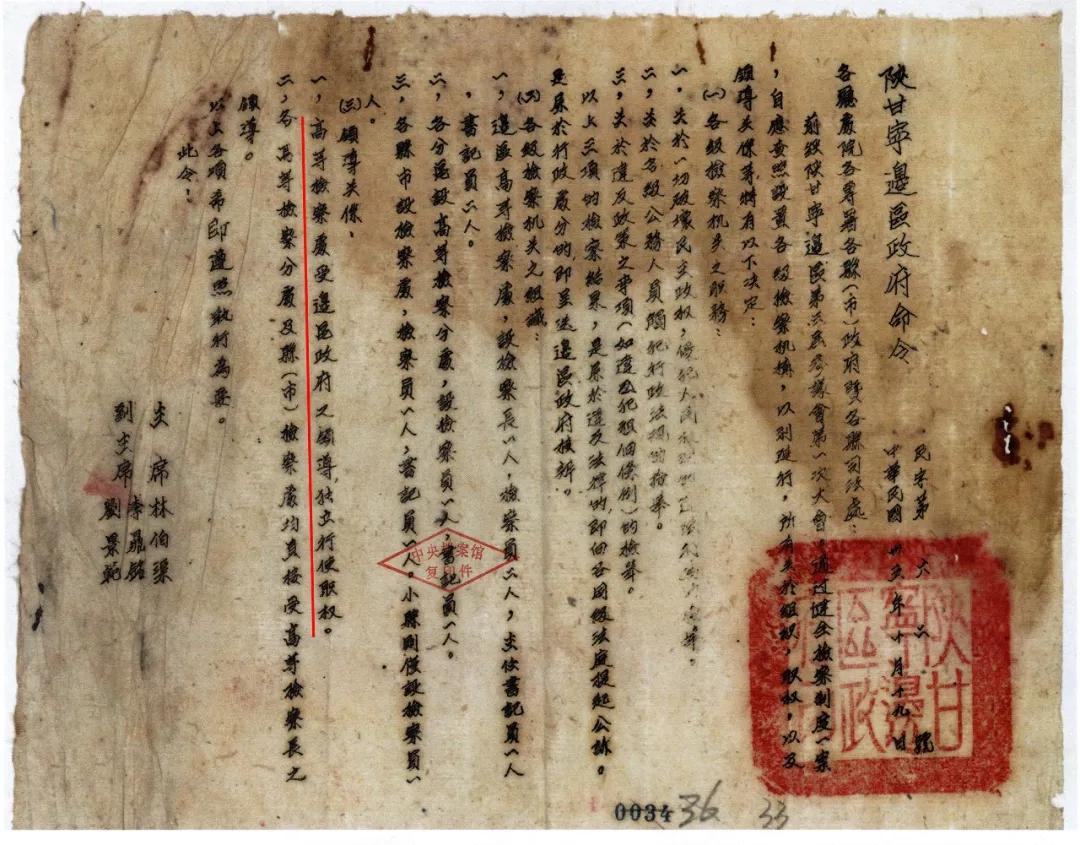 陝甘寧邊區政府命令
民字第 六二 號
中華民國卅五年十月十九日
各廳處院各專署各縣（市）政府暨各縣司法處：
前經陝甘寧邊區第三屆參議會第一次大會通過健全檢察制度一案
，自應查照設置各級檢察机構，以利進行，所有关於組织，职权，以及
領導关係等特有以下决定：
（一）各級檢察机关之职務：
一、关於一切破壞民主政权，侵犯人民權利的
二、关於各級公務人員觸犯行政法規的檢舉。
三、关於違反政策之事項（如違犯租佃條例）的檢舉。
以上三項的檢察結果，是屬於違反法律的，即向各同級法庭提起公訴。
是屬於行政處分的即呈送邊區政府核辦。
（二）各級檢察机关之組織：
一、邊區高等檢察處，設檢察長一人，檢察員二人，主任書記員一人
，書記員二人。
二、各分區設高等檢察分處，設檢察員一人，書記員一人。
三、各縣市設檢察處，檢察員一人，書記員一人。小縣則僅設檢察員一
人。
（三）領導关係：
一、高等檢察處受邊區政府之領導，独立行使职权。
二、各高等檢察分處及縣（市）檢察處均直接受高等檢察長之
領導。
以上各項希即遵照執行為要。
此令！
主席 林伯渠
副主席 李鼎銘
劉景範
陝甘寧邊區政
中央档案馆
复印件
0034
36
33